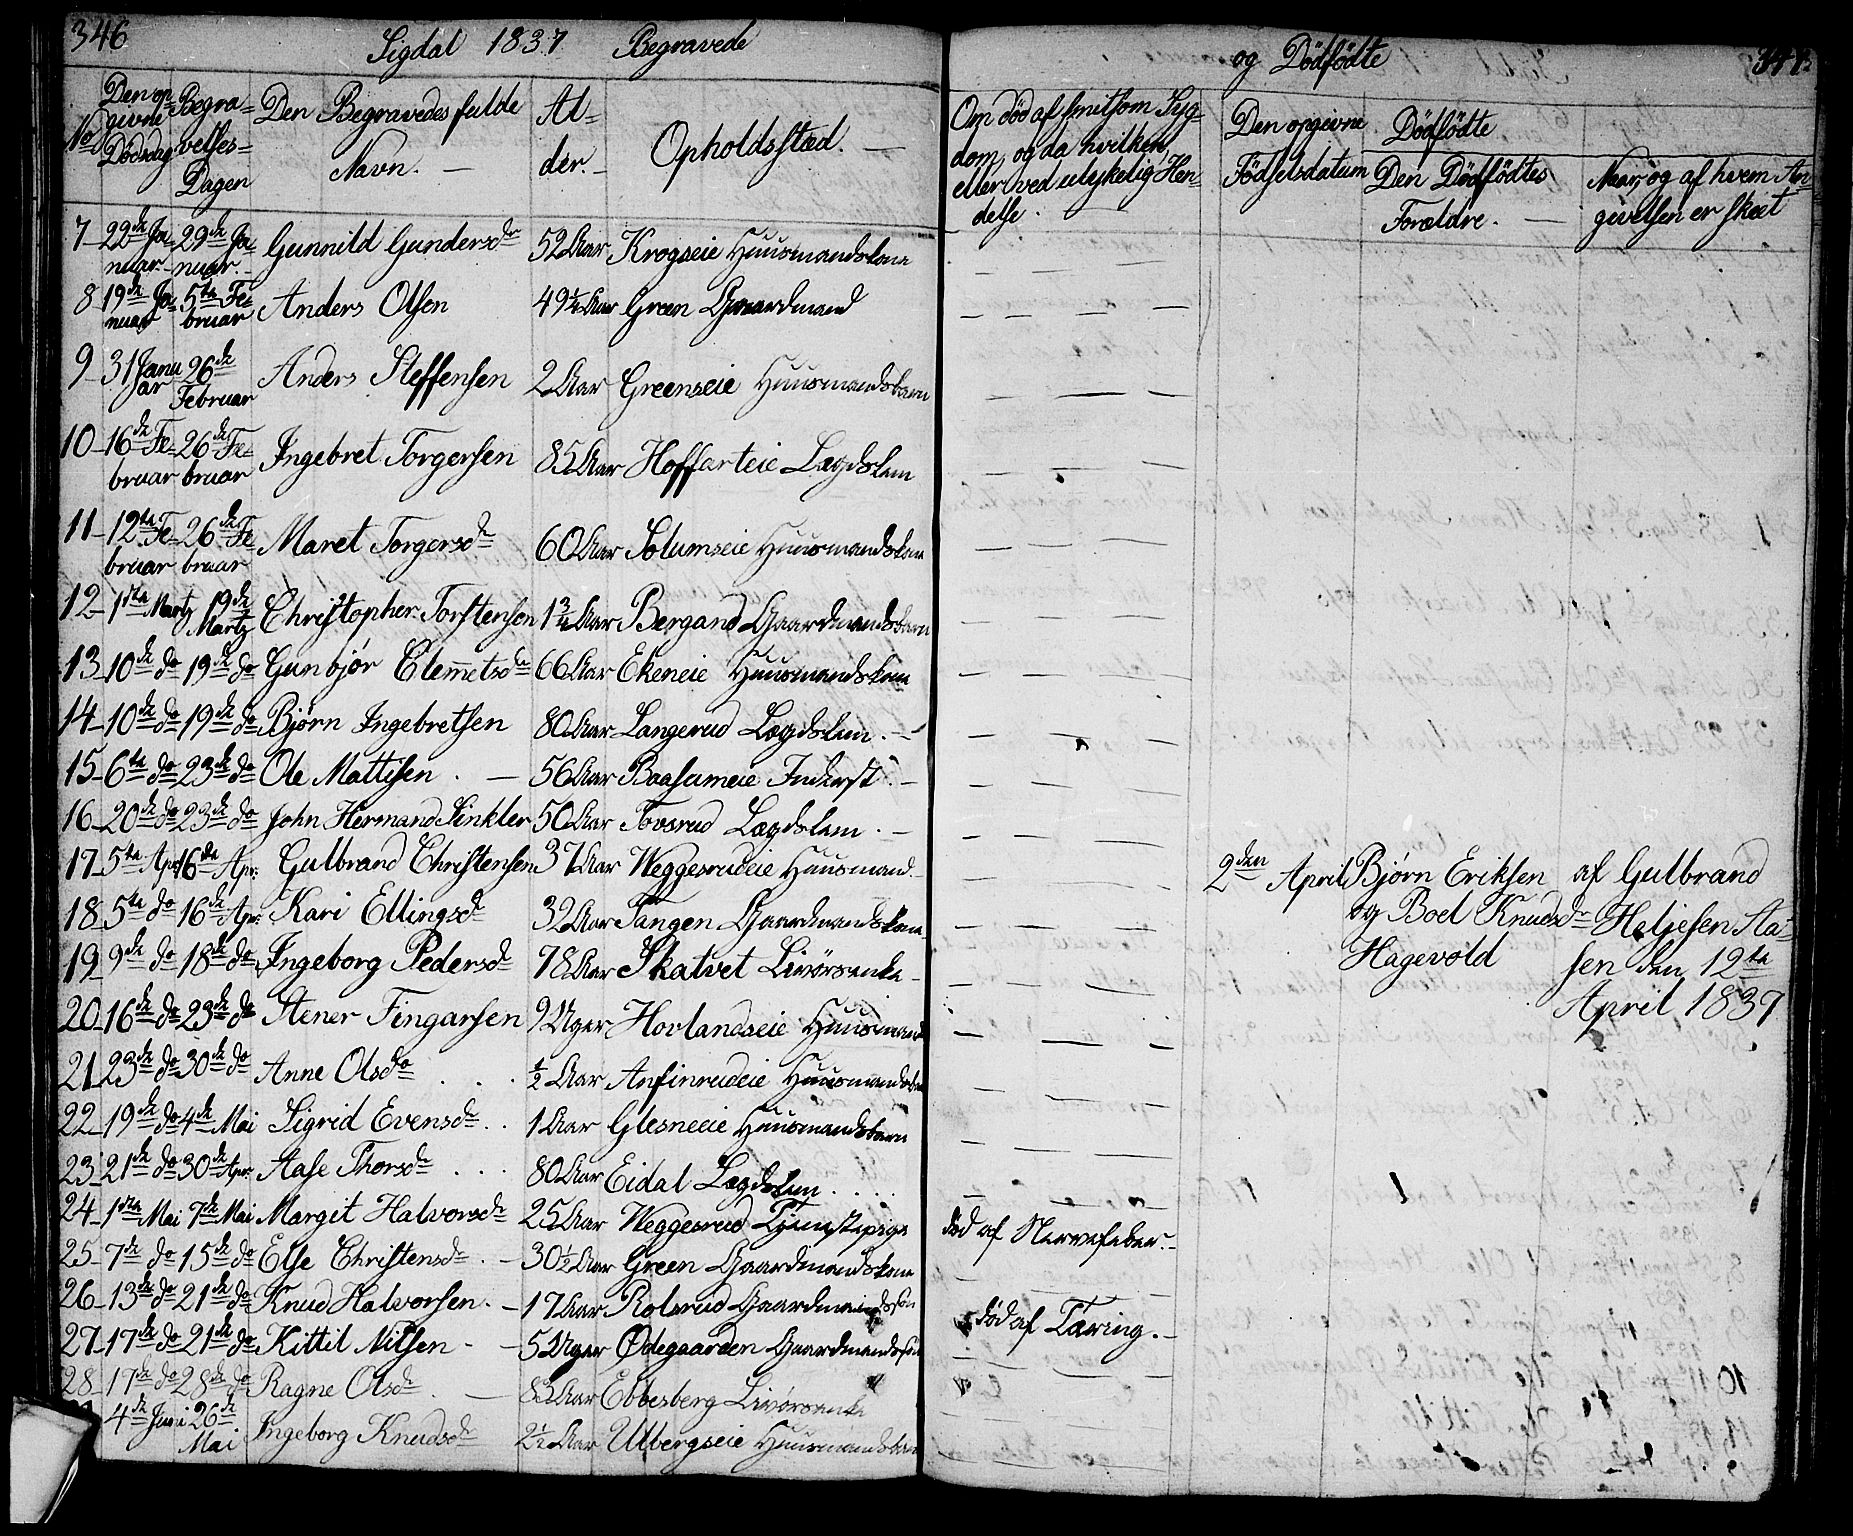 346 Sigdal 1837 Begravede
No Den op-givne Dødsdag Begra-velses-Dagen Den Begravedes fulde Navn. Al-der. Opholdsstæd.
7 22de Januar 29de Januar Gunnild Gundersdr 52 Aar Krogseie Huusmandskone
8 19de Januar 5te Februar Anders Olsen 49¼ Aar Green Gaardmand
9 31 Januar 26de Februar Anders Steffensen 2 Aar Greenseie Huusmandsbarn
10 16de Februar 26de Februar Ingebret Torgersen 85 Aar Hoffarteie Lægdslem
11 12te Februar 26de Februar Maret Torgersdr 60 Aar Solumseie Huusmandskone
12 1ste Martz 19de Martz Christopher Torstensen 1¾ Aar Bergand Gaardmandsbarn
13 10de do 19de do Gunbjør Clemetsdr 66 Aar Ekeneie Huusmandskone
14 10de do 19de do Bjørn Ingebretsen 80 Aar Langerud Lægdslem.
15 6te do 23de do Ole Mattisen. 56 Aar Baasumeie Inderst.
16 20de do 23de do John Hermand Sinkler 50 Aar Tovsrud Lægdslem.
17 5te Apr: 16de Apr: Gulbrand Christensen 37 Aar Weggesrudeie Huusmand.
18 5te do 16de Apr: Kari Ellingsdr 32 Aar Tangen Gaardmandskone
19 9de do 18de do Ingeborg Pedersdr 78 Aar Skatvet Livørsenke
20 16de do 23de do Stener Fingarsen 9 Uger Hovlandseie Huusmands
21 23de do 30de do Anne Olsdr ½ Aar Anfinrudeie Huusmandsbar
22 19de do 4de Mai Sigrid Evensdr 1 Aar Glesneeie Huusmandsbarn
23 21de do 30de Apr: Aase Thorsdr 80 Aar Eidal Lægdslem
24 1ste Mai 7de Mai Margit Halvorsdr 25 Aar Weggesrud Tjenstepige
25 7de do 15de do Else Christensdr 30½ Aar Green Gaardmandskone
26 13de do 21de do Knud Halvorsen. 17 Aar Rolsrud Gaardmandssøn
27 17de do 21de do Kittil Nilsen 5 Uger Ødegaarden Gaardmandssøn
28 17de do 28de do Ragne Olsdr 83 Aar Ebbesberg Livørsenke
4de Juni 26de Mai Ingeborg Knudsdr 2½ Aar Ulbergseie Huusmandsbarn
og Dødfødte
Om død af smitsom Syg-
dom, og da hvilken,
eller ved ulykkelig Hen-
delse.
Den opgivne
Fødselsdatum
Dødfødte
Den Dødfødtes
Forældre.
Naar, og af hvem An-
givelsen er skeet
2den April Bjørn Eriksen af Gulbrand
og Boel Knudsdr Heljesen Aa-
Hagevold sen den 12te
April 1837
død af Nervefeber.
død af Tæring.